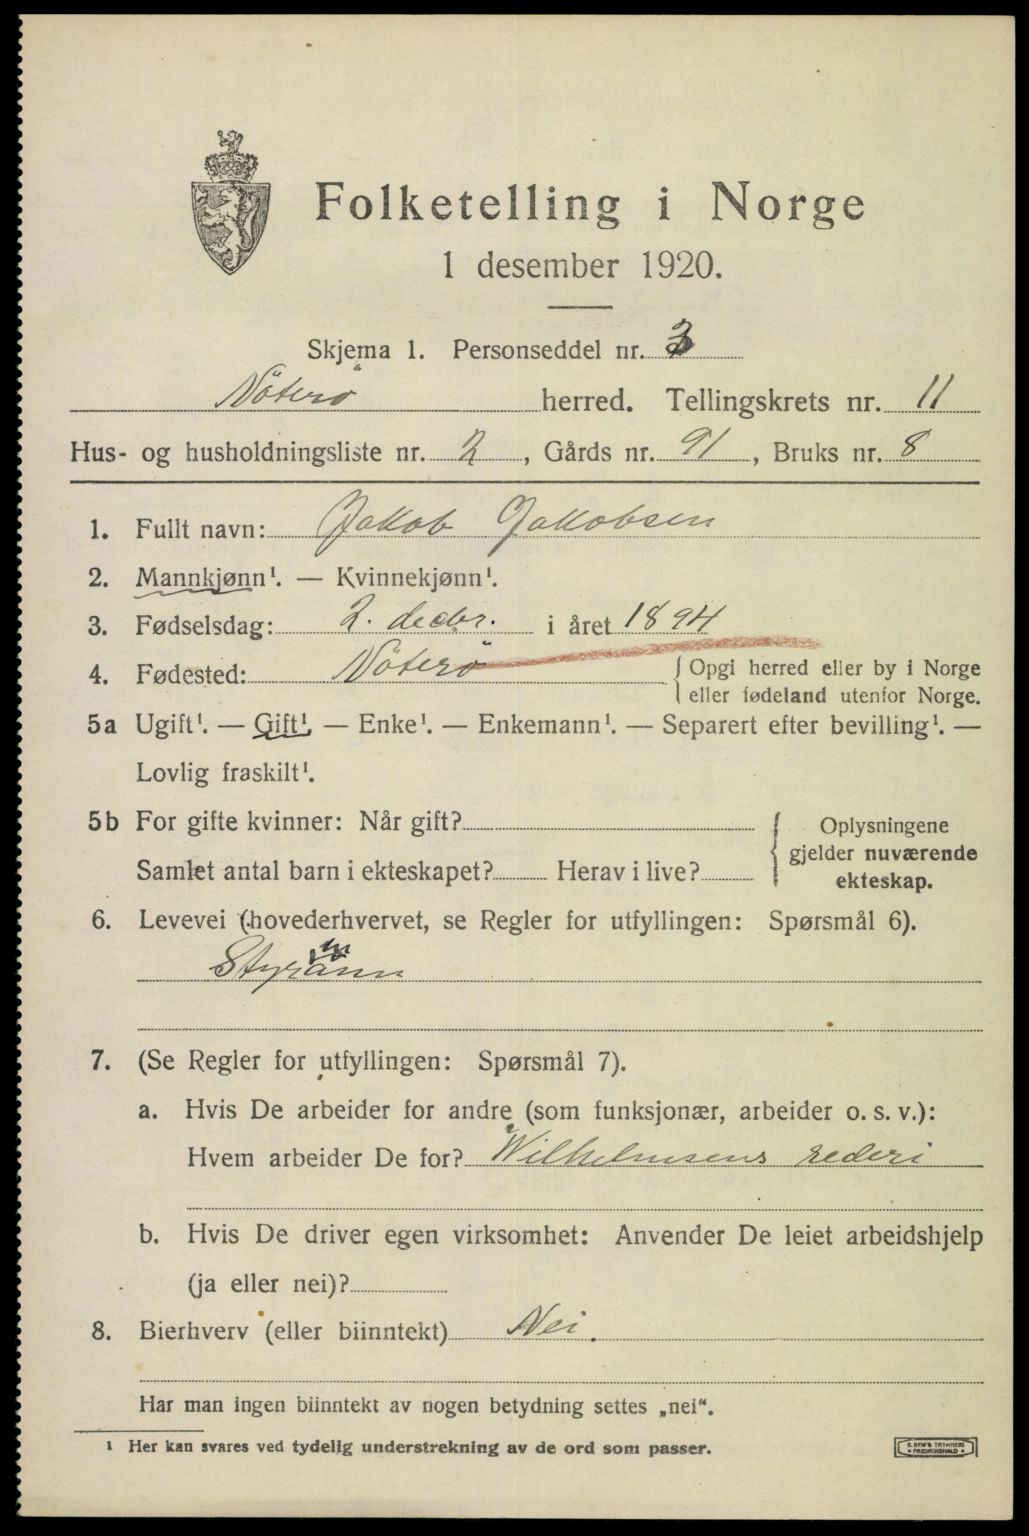 Folketelling i Norge
1 desember 1920.
Skjema 1. Personseddel nr. 3
Nöterö herred. Tellingskrets nr. 11
Hus- og husholdningsliste nr. 2, Gårds nr. 91, Bruks nr. 8
1. Fullt navn: Jakob Jakobsen
2. Mannkjønn¹. — Kvinnekjønn¹.
3. Fødselsdag: 2. decbr. i året 1894
4. Fødested: Nöterö {Opgi herred eller by i Norge
eller fødeland utenfor Norge.
5a Ugift¹. — Gift¹. — Enke¹. — Enkemann¹. — Separert efter bevilling¹. —
Lovlig fraskilt¹.
5b For gifte kvinner: Når gift?
Samlet antal barn i ekteskapet? Herav i live?
{Oplysningene
gjelder nuværende
ekteskap.
6. Levevei (hovederhvervet, se Regler for utfyllingen: Spørsmål 6).
Styrmann
7. (Se Regler for utfyllingen: Spørsmål 7).
a. Hvis De arbeider for andre (som funksjonær, arbeider o. s. v.):
Hvem arbeider De for? Wilhelmsens rederi
b. Hvis De driver egen virksomhet: Anvender De leiet arbeidshjelp
(ja eller nei)?
8. Bierhverv (eller biinntekt) Nei.
Har man ingen biinntekt av nogen betydning settes „nei“.
¹ Her kan svares ved tydelig understrekning av de ord som passer.
E SEM'S TRYKKERI
FREDRIKSHALD